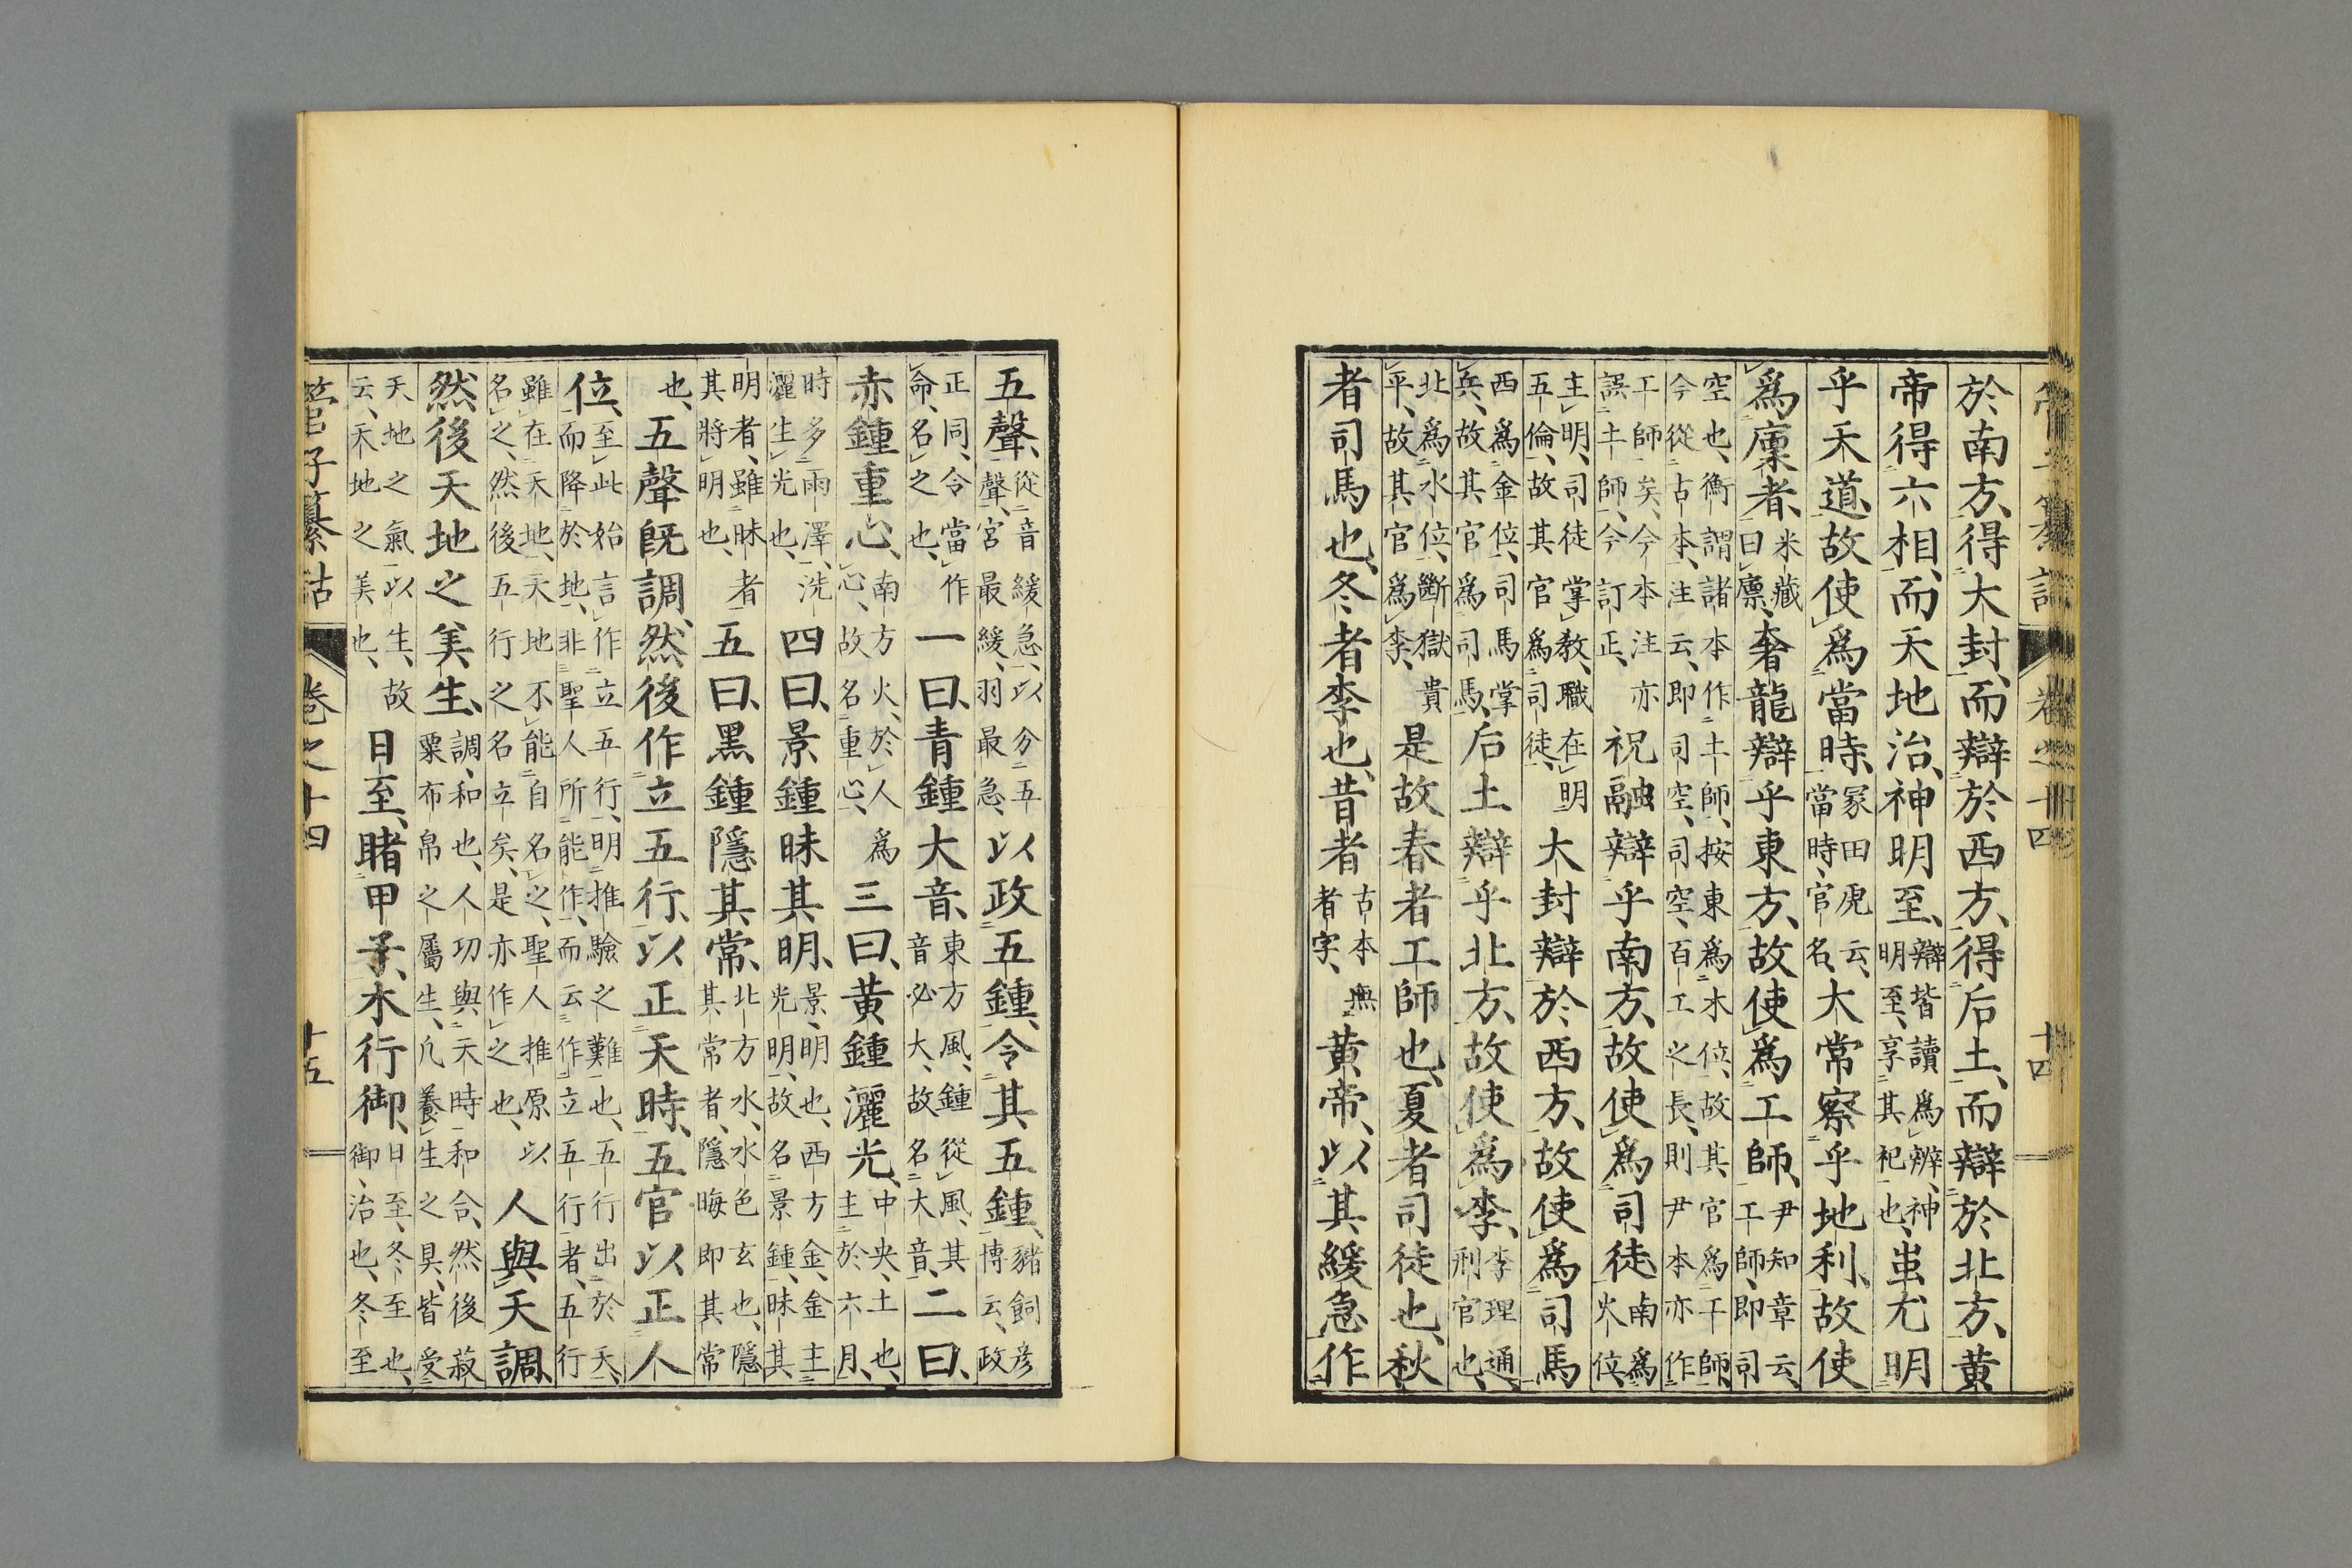 管子纂詁 卷之十四 十四
於南方、得大封、而辯於西方、得后土、而辯於北方、黃
帝得六相、而天地治、神明至、辯皆讀爲辨、神明至、享其祀也、蚩尤明
乎天道、故使爲當時、冢田虎云、當時、官名、大常察乎地利、故使
爲廩者、米藏曰廩、奢龍辯乎東方、故使爲工師、尹知章云、工師、即司
空也、衡謂諸本作土師、按東爲木位、故其官爲工師、今從古本、注云、即司空、司空、百工之長、則尹本亦作
工師矣、今本注亦誤土師、今訂正、祝融辯乎南方、故使爲司徒、南爲火位、
主明、司徒掌教、職在明五倫、故其官爲司徒、大封辯於西方、故使爲司馬
西爲金位、司馬掌兵、故其官爲司馬、后土辯乎北方、故使爲李、李理通、刑官也、
北爲水位、斷獄貴平、故其官爲李、是故春者工師也、夏者司徒也、秋
者司馬也、冬者李也、昔者古本無者字、黃帝、以其緩急作
五聲、從音緩急、以分五聲、宮最緩、羽最急、以政五鍾、令其五鍾、豬飼彥博云、政
正同、令當作命、名之也、一曰、青鍾大音、東方風、鍾從風、其音必大、故名大音、二曰、
赤鍾重心、南方火、於人爲心、故名重心、三曰、黃鍾灑光、中央土也、主於六月、
時多雨澤、洗灑生光也、四曰、景鍾昧其明、景、明也、西方金、金主光明、故名景鍾、昧其
明者、雖昧者其將明也、五曰、黑鍾隱其常、北方水、水色玄也、隱其常者、隱晦即其常
也、五聲既調、然後作立五行、以正天時、五官以正人
位、至此始言作立五行、明推驗之難也、五行出於天、而降於地、非聖人所能作、而云作立五行者、五行
雖在天地、天地不能自名之、聖人推原以名之、然後五行之名立矣、是亦作之也、人與天調、
然後天地之美生、調、和也、人功與天時和合、然後菽粟布帛之屬生、凡養生之具、皆受
天地之氣以生、故云、天地之美也、日至、睹甲子、木行御、日至、冬至也、御、治也、冬至
管子纂詁 卷之十四 十五